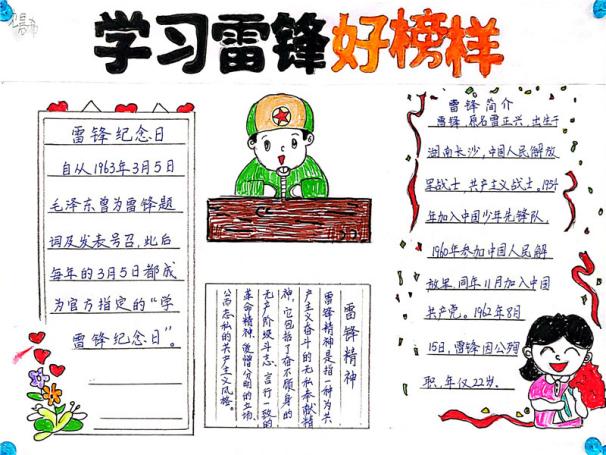 学习雷锋好榜样
雷锋纪念日
自从1963年3月5日
毛泽东曾为雷锋题
词及发表号召,此后
每年的3月5日都成
为官方指定的“学
雷锋纪念日”。
雷锋精神
雷锋精神是指一种为共
产主义奋斗的无私奉献精
神,它包括了奋不顾身的
无产阶级斗志、言行一致的
革命精神、爱憎分明的立场、
公而忘私的共产主义风格。
雷锋简介
雷锋,原名雷正兴,出生于
湖南长沙,中国人民解放
军战士,共产主义战士,1954
年加入中国少年先锋队,
1960年参加中国人民解
放军,同年11月加入中国
共产党。1962年8月
15日,雷锋因公殉
职,年仅22岁。